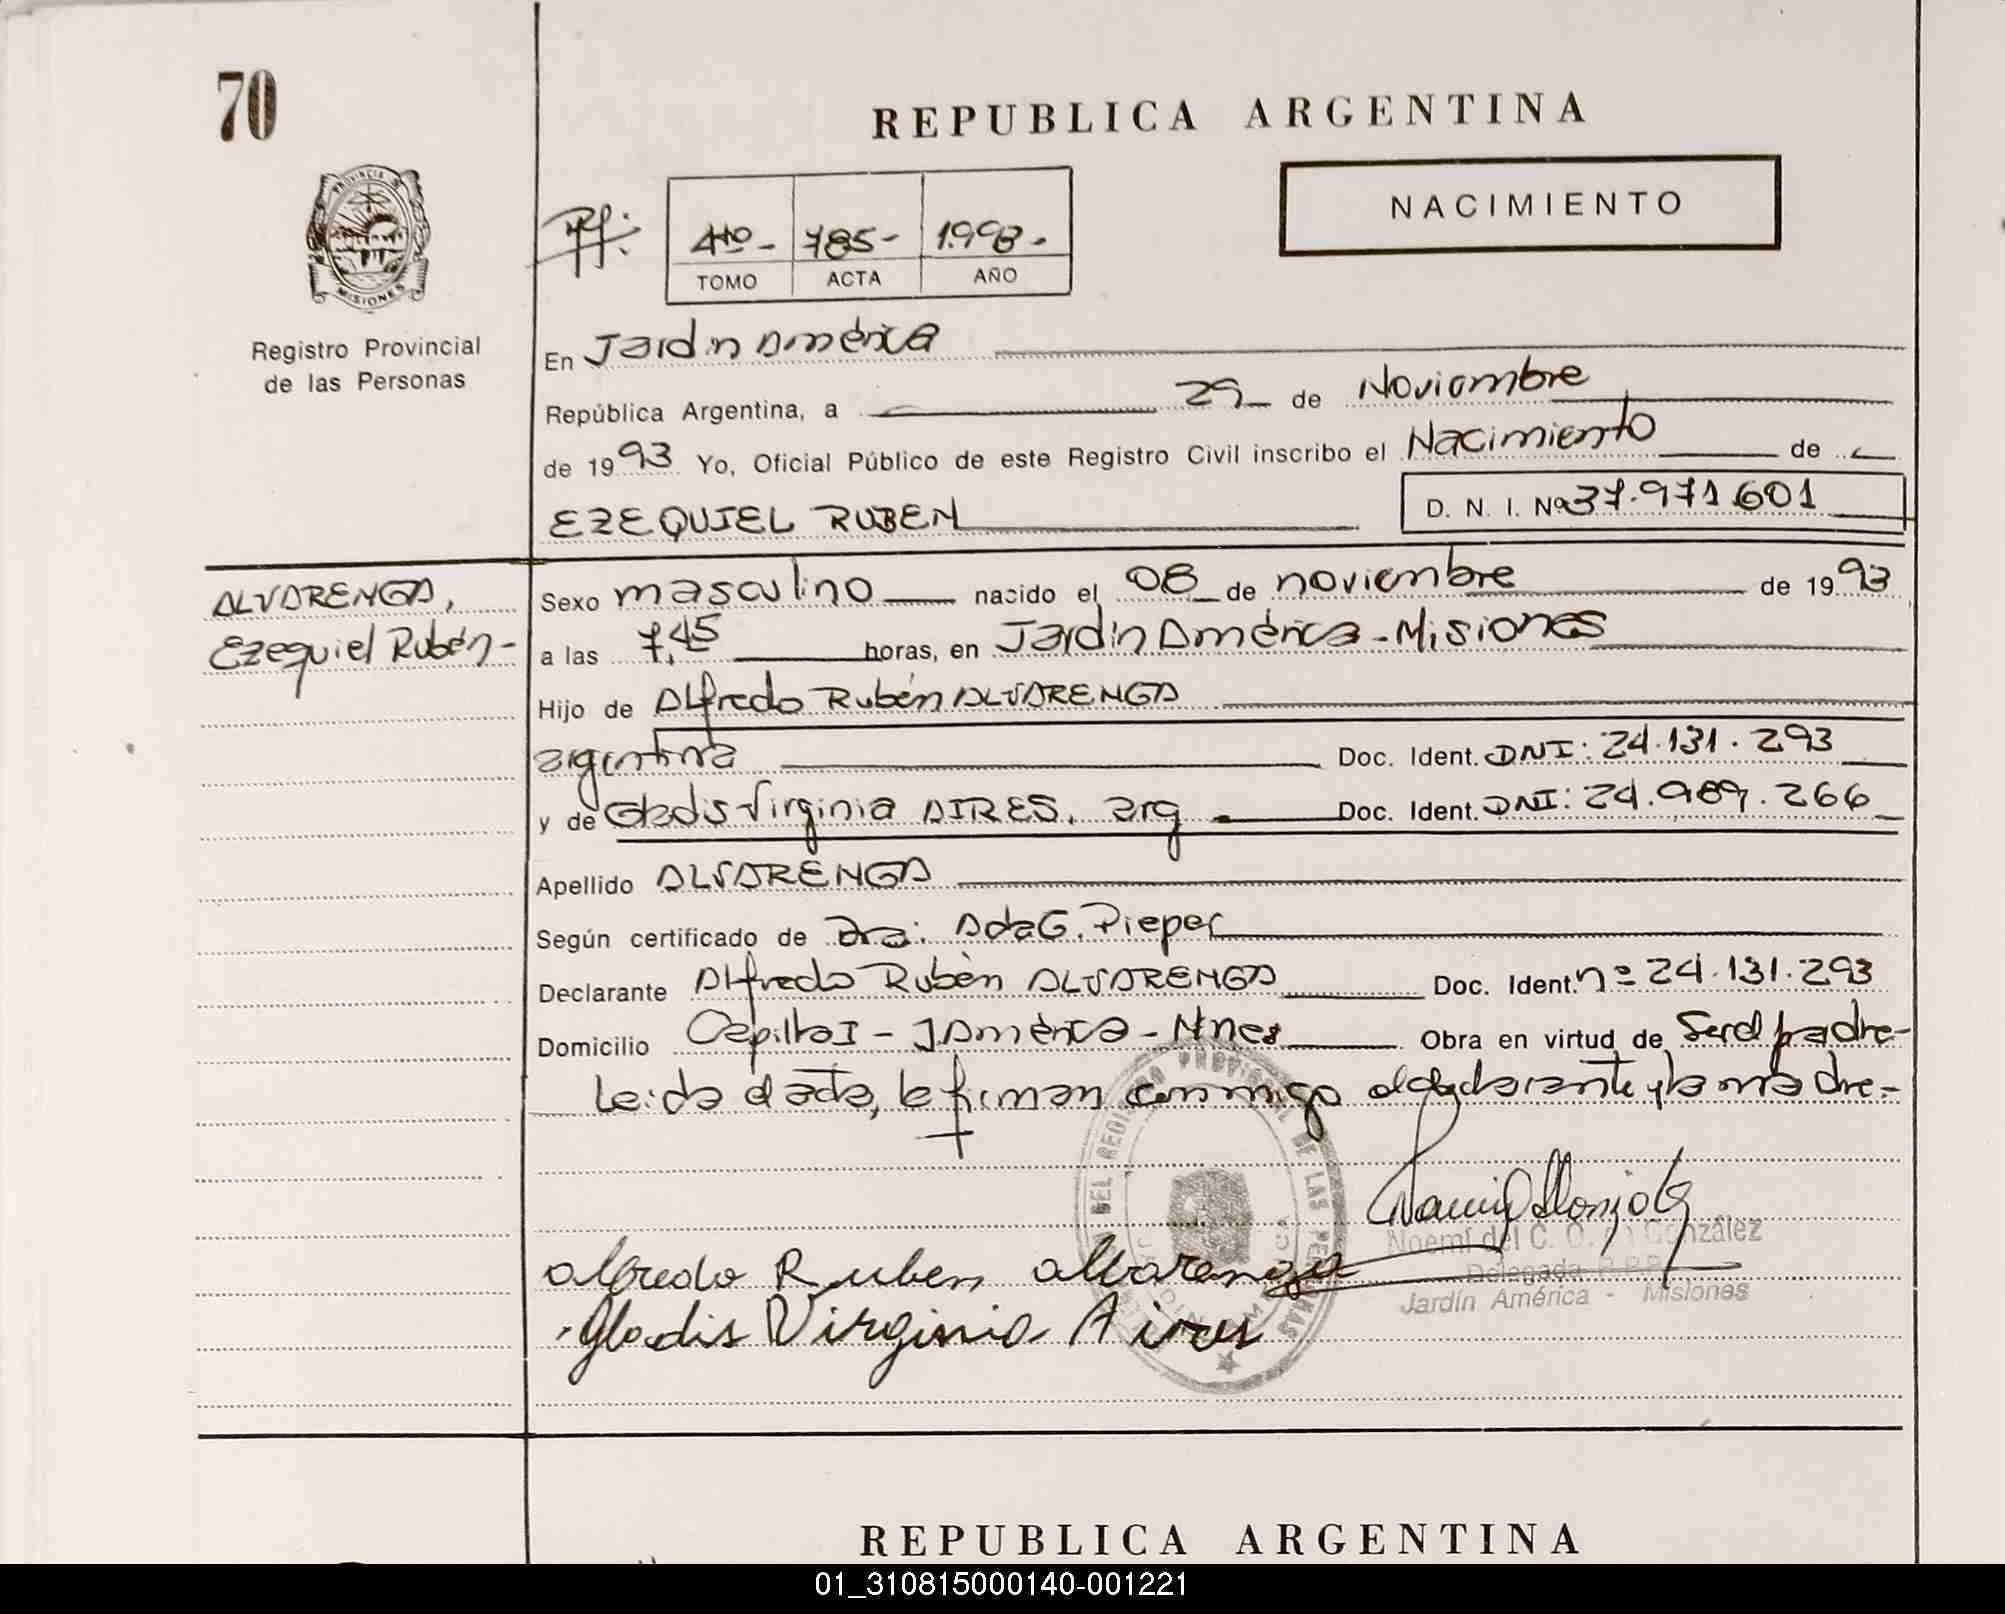 70
REPUBLICA ARGENTINA
NACIMIENTO
PROVINCIA D
MISIONES
Registro Provincial
de las Personas
4to - 785 - 1.993 -
TOMO ACTA AÑO
En Jardín América
República Argentina, a 29 de Noviembre
de 1993 Yo, Oficial Público de este Registro Civil inscribo el Nacimiento de
EZEQUIEL RUBEN D. N. I. Nº 37.971.601
ALVARENGA,
Ezequiel Rubén -
Sexo masculino nacido el 08 de noviembre de 1993
a las 7,45 horas, en Jardín América - Misiones
Hijo de Alfredo Rubén ALVARENGA
argentina Doc. Ident. DNI: 24.131.293
y de Gladis Virginia AIRES, arg Doc. Ident. DNI: 24.989.266
Apellido ALVARENGA
Según certificado de Dra: Ada G. Pieper
Declarante Alfredo Rubén ALVARENGA Doc. Ident. nº 24.131.293
Domicilio Capilla I - J. América - Mnes Obra en virtud de Ser el padre -
Leída el acta, la firman conmigo el declarante y la madre. -
DEL REGISTRO PROVINCIAL DE LAS PERSONAS
Noemí del C. González
Delegada R.P.P.
Jardín América - Misiones
alfredo Ruben alvarenga
Gladis Virginia Aires
REPUBLICA ARGENTINA
01_310815000140-001221